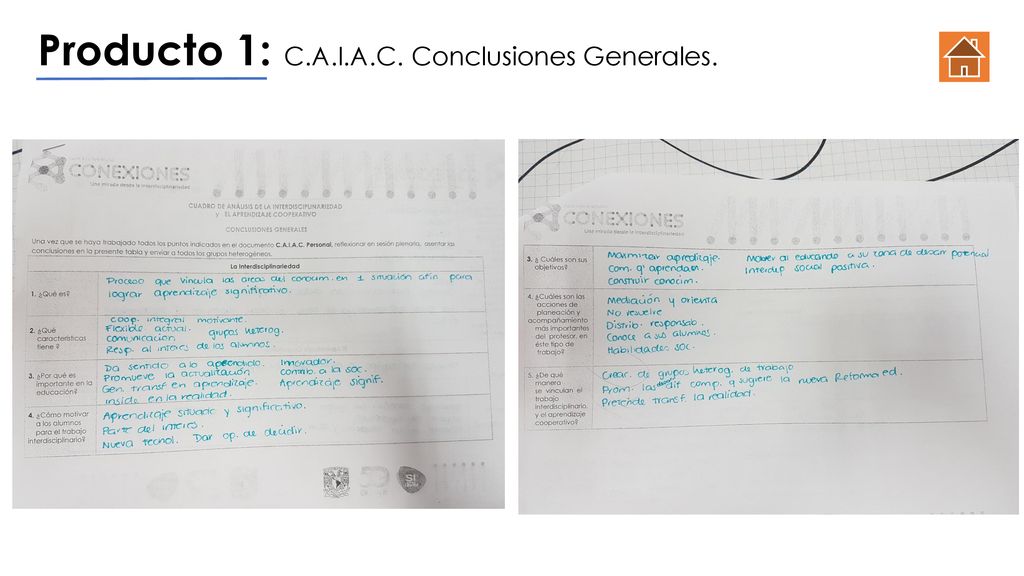 Producto 1: C.A.I.A.C. Conclusiones Generales.
CONEXIONES
Una mirada desde la interdisciplinariedad
CUADRO DE ANÁLISIS DE LA INTERDISCIPLINARIEDAD
y EL APRENDIZAJE COOPERATIVO
CONCLUSIONES GENERALES
Una vez que se haya trabajado todos los puntos indicados en el documento C.A.I.A.C. Personal, reflexionar en sesión plenaria, asentar las
conclusiones en la presente tabla y enviar a todos los grupos heterogéneos.
La Interdisciplinariedad
1. ¿Qué es?
Proceso que vincula las areas del conocim. en 1 situación afín para
lograr aprendizaje significativo.
2. ¿Qué
características
tiene ?
Coop. integral motivante.
Flexible actual. grupos heterog.
comunicación
Resp. al interés de los alumnos.
3. ¿Por qué es
importante en la
educación?
Da sentido a lo aprendido. Innovador.
Promueve la actualización contrib. a la soc.
Gen. transf en aprendizaje. Aprendizaje signif.
inside en la realidad.
4. ¿Cómo motivar
a los alumnos
para el trabajo
interdisciplinario?
Aprendizaje situado y significativo.
Parte del interés.
Nueva tecnol. Dar op. de decidir.
CONEXIONES
Una mirada desde la interdisciplinariedad
3. ¿ Cuáles son sus
objetivos?
Maximizar aprendizaje. Mover al educando a su zona de desarr potencial
Com. q' aprendan. Interdep social positiva.
Construir conocim.
4. ¿Cuáles son las
acciones de
planeación y
acompañamiento
más importantes
del profesor, en
éste tipo de
trabajo?
Mediación y orienta
No resuelve
Distrib. responsab.
Conoce a sus alumnos.
Habilidades soc.
5. ¿De qué
manera
se vinculan el
trabajo
interdisciplinario,
y el aprendizaje
cooperativo?
Crear. de grupos heterog. de trabajo
Prom. las comp. q sugiere la nueva Reforma ed.
Pretende transf. la realidad.